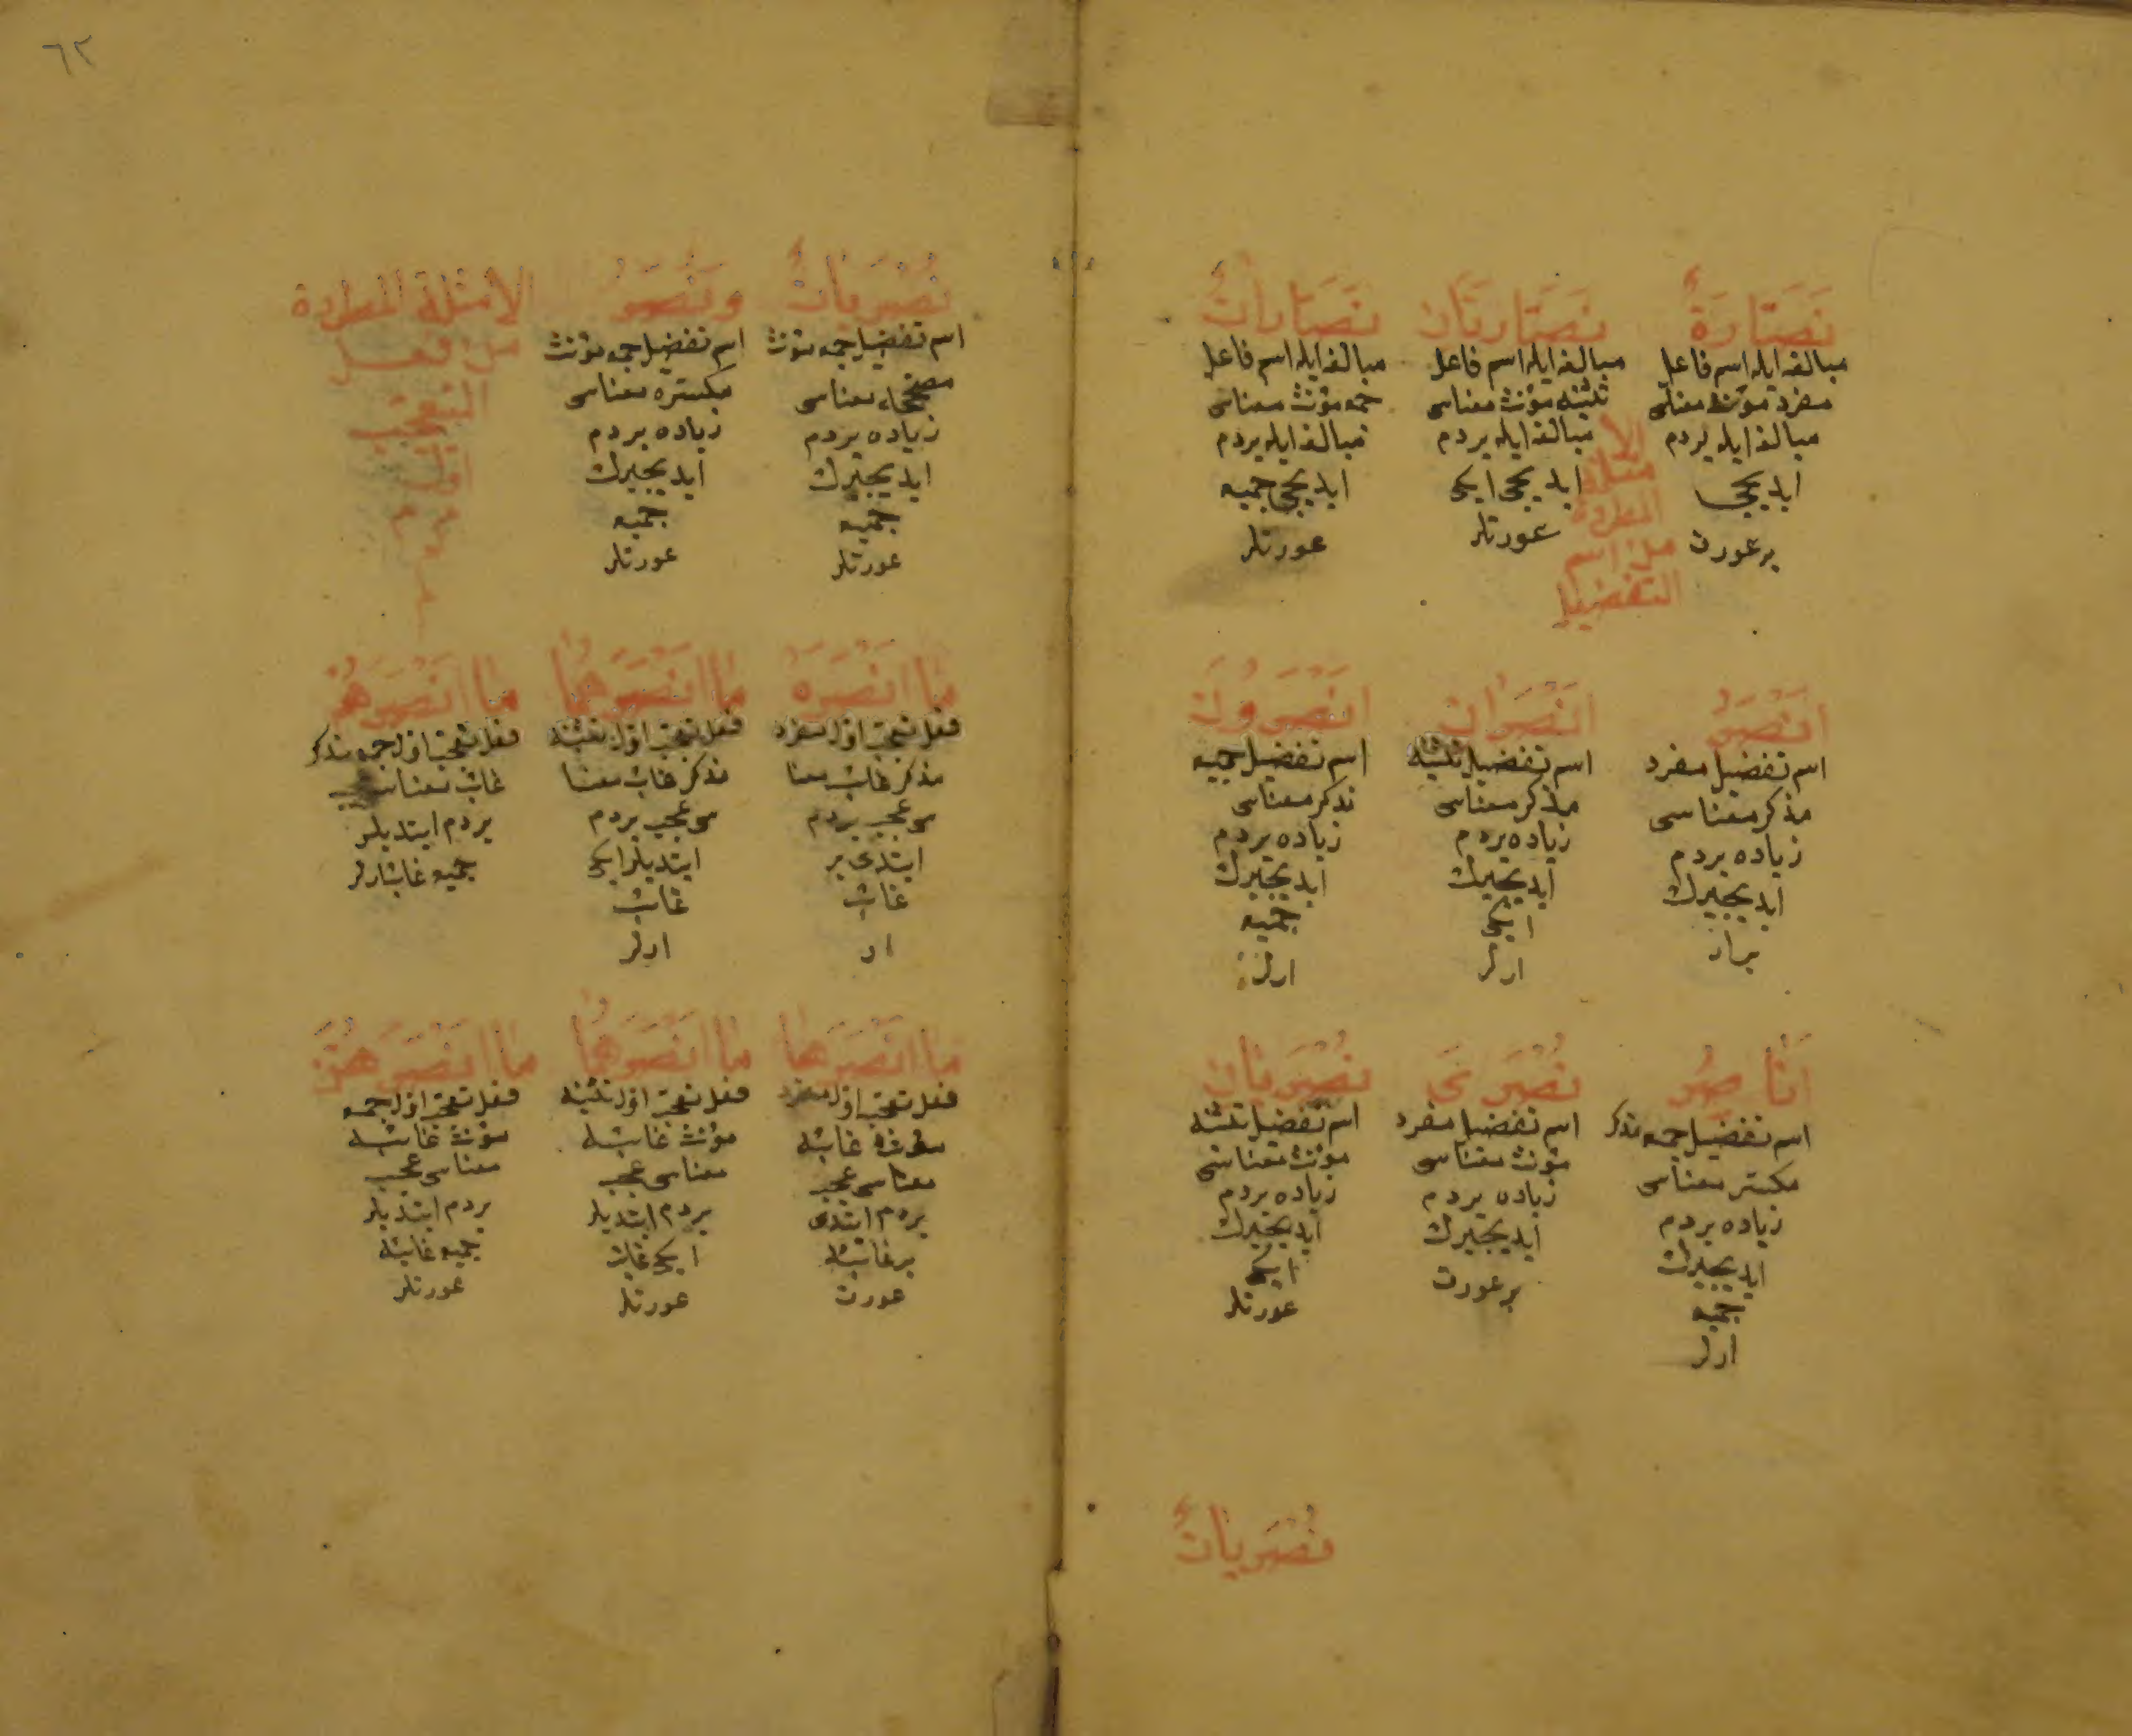 نَصَّارَةٌ
مبالغه ايله اسم فاعل
مفرد مؤنث معناسی
مبالغه ايله يردم
ايديجی
بر عورت
نَصَّارَتَانِ
مبالغه ايله اسم فاعل
تثنيه مؤنث معناسی
مبالغه ايله يردم
ايديجی ايكی
عورتلر
نَصَّارَاتٌ
مبالغه ايله اسم فاعل
جمع مؤنث معناسی
مبالغه ايله يردم
ايديجی جميع
عورتلر
الأ
مثلة
المطردة
من اسم
التفضيل
اَنْصَرُ
اسم تفضيل مفرد
مذكر معناسی
زياده يردم
ايديجيرك
بر ار
اَنْصَرَانِ
اسم تفضيل تثنيه
مذكر معناسی
زياده يردم
ايديجيرك
ايكی
ارلر
اَنْصَرُونَ
اسم تفضيل جميع
مذكر معناسی
زياده يردم
ايديجيرك
جميع
ارلر
اَنَاصِرُ
اسم تفضيل جمع مذكر
مكسر معناسی
زياده يردم
ايديجيرك
جميع
ارلر
نُصْرَىٰ
اسم تفضيل مفرد
مؤنث معناسی
زياده يردم
ايديجيرك
بر عورت
نُصْرَيَانِ
اسم تفضيل تثنيه
مؤنث معناسی
زياده يردم
ايديجيرك
ايكی
عورتلر
نُصْرَيَاتٌ
٦٢
نُصْرَيَاتٌ
اسم تفضيل جمع مؤنث
معناسی
زياده يردم
ايديجيرك
جميع
عورتلر
وَنُصَرُ
اسم تفضيل جمع مؤنث
مكسره معناسی
زياده يردم
ايديجيرك
جميع
عورتلر
الأمثلة المطردة
من فعل
التعجب
اول
مَا اَنْصَرَهُ
فعل تعجب اول مفرد
مذكر غائب معنا
سی عجب يردم
ايتدی بر
غائب
ار
مَا اَنْصَرَهُمَا
فعل تعجب اول تثنيه
مذكر غائب معنا
سی عجب يردم
ايتديلر ايكی
غائب
ارلر
مَا اَنْصَرَهُمْ
فعل تعجب اول جمع مذكر
غائب معناسی عجب
يردم ايتديلر
جميع غائب ارلر
مَا اَنْصَرَهَا
فعل تعجب اول مفرد
مؤنث غائبه
معناسی عجب
يردم ايتدی
بر غائبه
عورت
مَا اَنْصَرَهُمَا
فعل تعجب اول تثنيه
مؤنث غائبه
معناسی عجب
يردم ايتديلر
ايكی غائب
عورتلر
مَا اَنْصَرَهُنَّ
فعل تعجب اول جمع
مؤنث غائبه
معناسی عجب
يردم ايتديلر
جميع غائبه
عورتلر